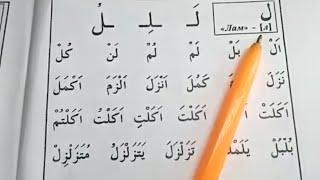 ل
«Лам» - [л]
لَ لِ لُ
اَلْ بَلْ لَمْ لُمْ لَنْ كُلْ
نَزَلَ كَمُلَ اَنْزَلَ اَلْزَمَ اَكْمَلَ
اَكَلَتْ اَكَلْتَ اَكَلْتِ اَكَلْتُ اَكَلْتُمْ
بُلْبُلْ يَلَمْلَمْ تَزَلْزَلَ يَتَزَلْزَلُ مُتَزَلْزِلْ